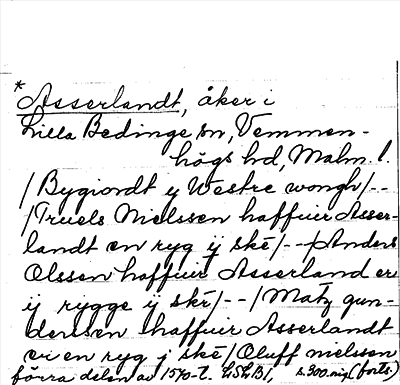 * Asserlandt, åker i
Lilla Beddinge sn, Vemmen-
högs hd, Malm. l.
/Bygiordt y Westre wongh/--
/Truels Nielssen haffuer Asser-
landt en ryg ÿ skē/--/Anders
Olssen haffuer Asserland er
ij rygge ÿ skē/--/Matz gun-
dersen haffuer Asserlandt
er en ryg j skē/Oluff nielssen
förra delen av 1570-t. LSLB1, s. 300. (forts.)